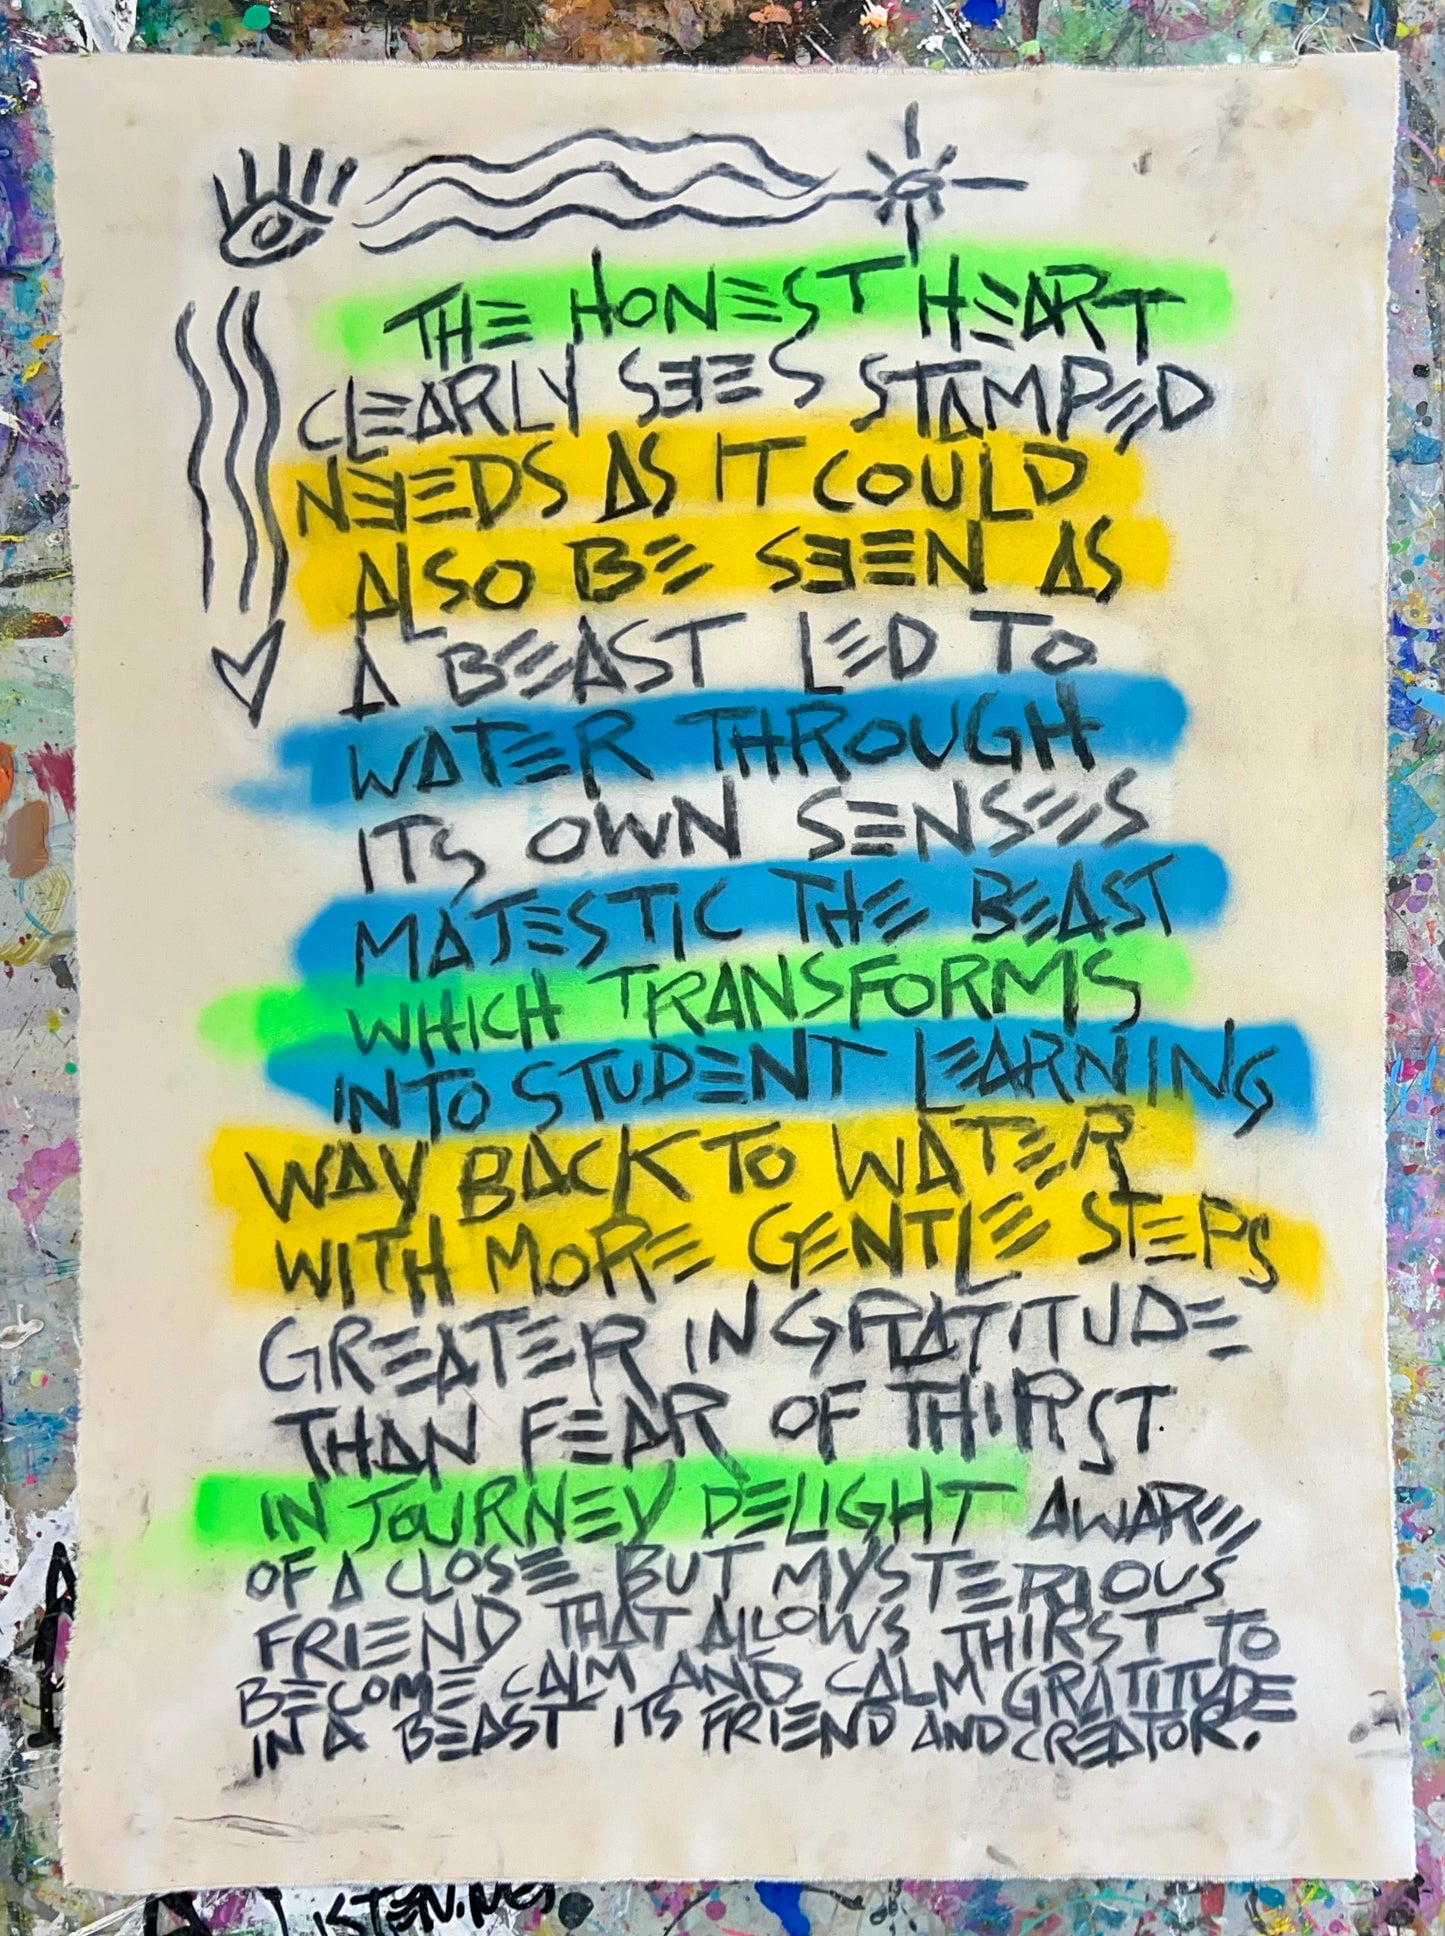 THE HONEST HEART
CLEARLY SEES STAMPED
NEEDS AS IT COULD
ALSO BE SEEN AS
A BEAST LED TO
WATER THROUGH
ITS OWN SENSES
MAJESTIC THE BEAST
WHICH TRANSFORMS
INTO STUDENT LEARNING
WAY BACK TO WATER
WITH MORE GENTLE STEPS
GREATER IN GRATITUDE
THAN FEAR OF THIRST
IN JOURNEY DELIGHT AWARE
OF A CLOSE BUT MYSTERIOUS
FRIEND THAT ALLOWS THIRST TO
BECOME CALM AND CALM GRATITUDE
IN A BEAST ITS FRIEND AND CREATOR.